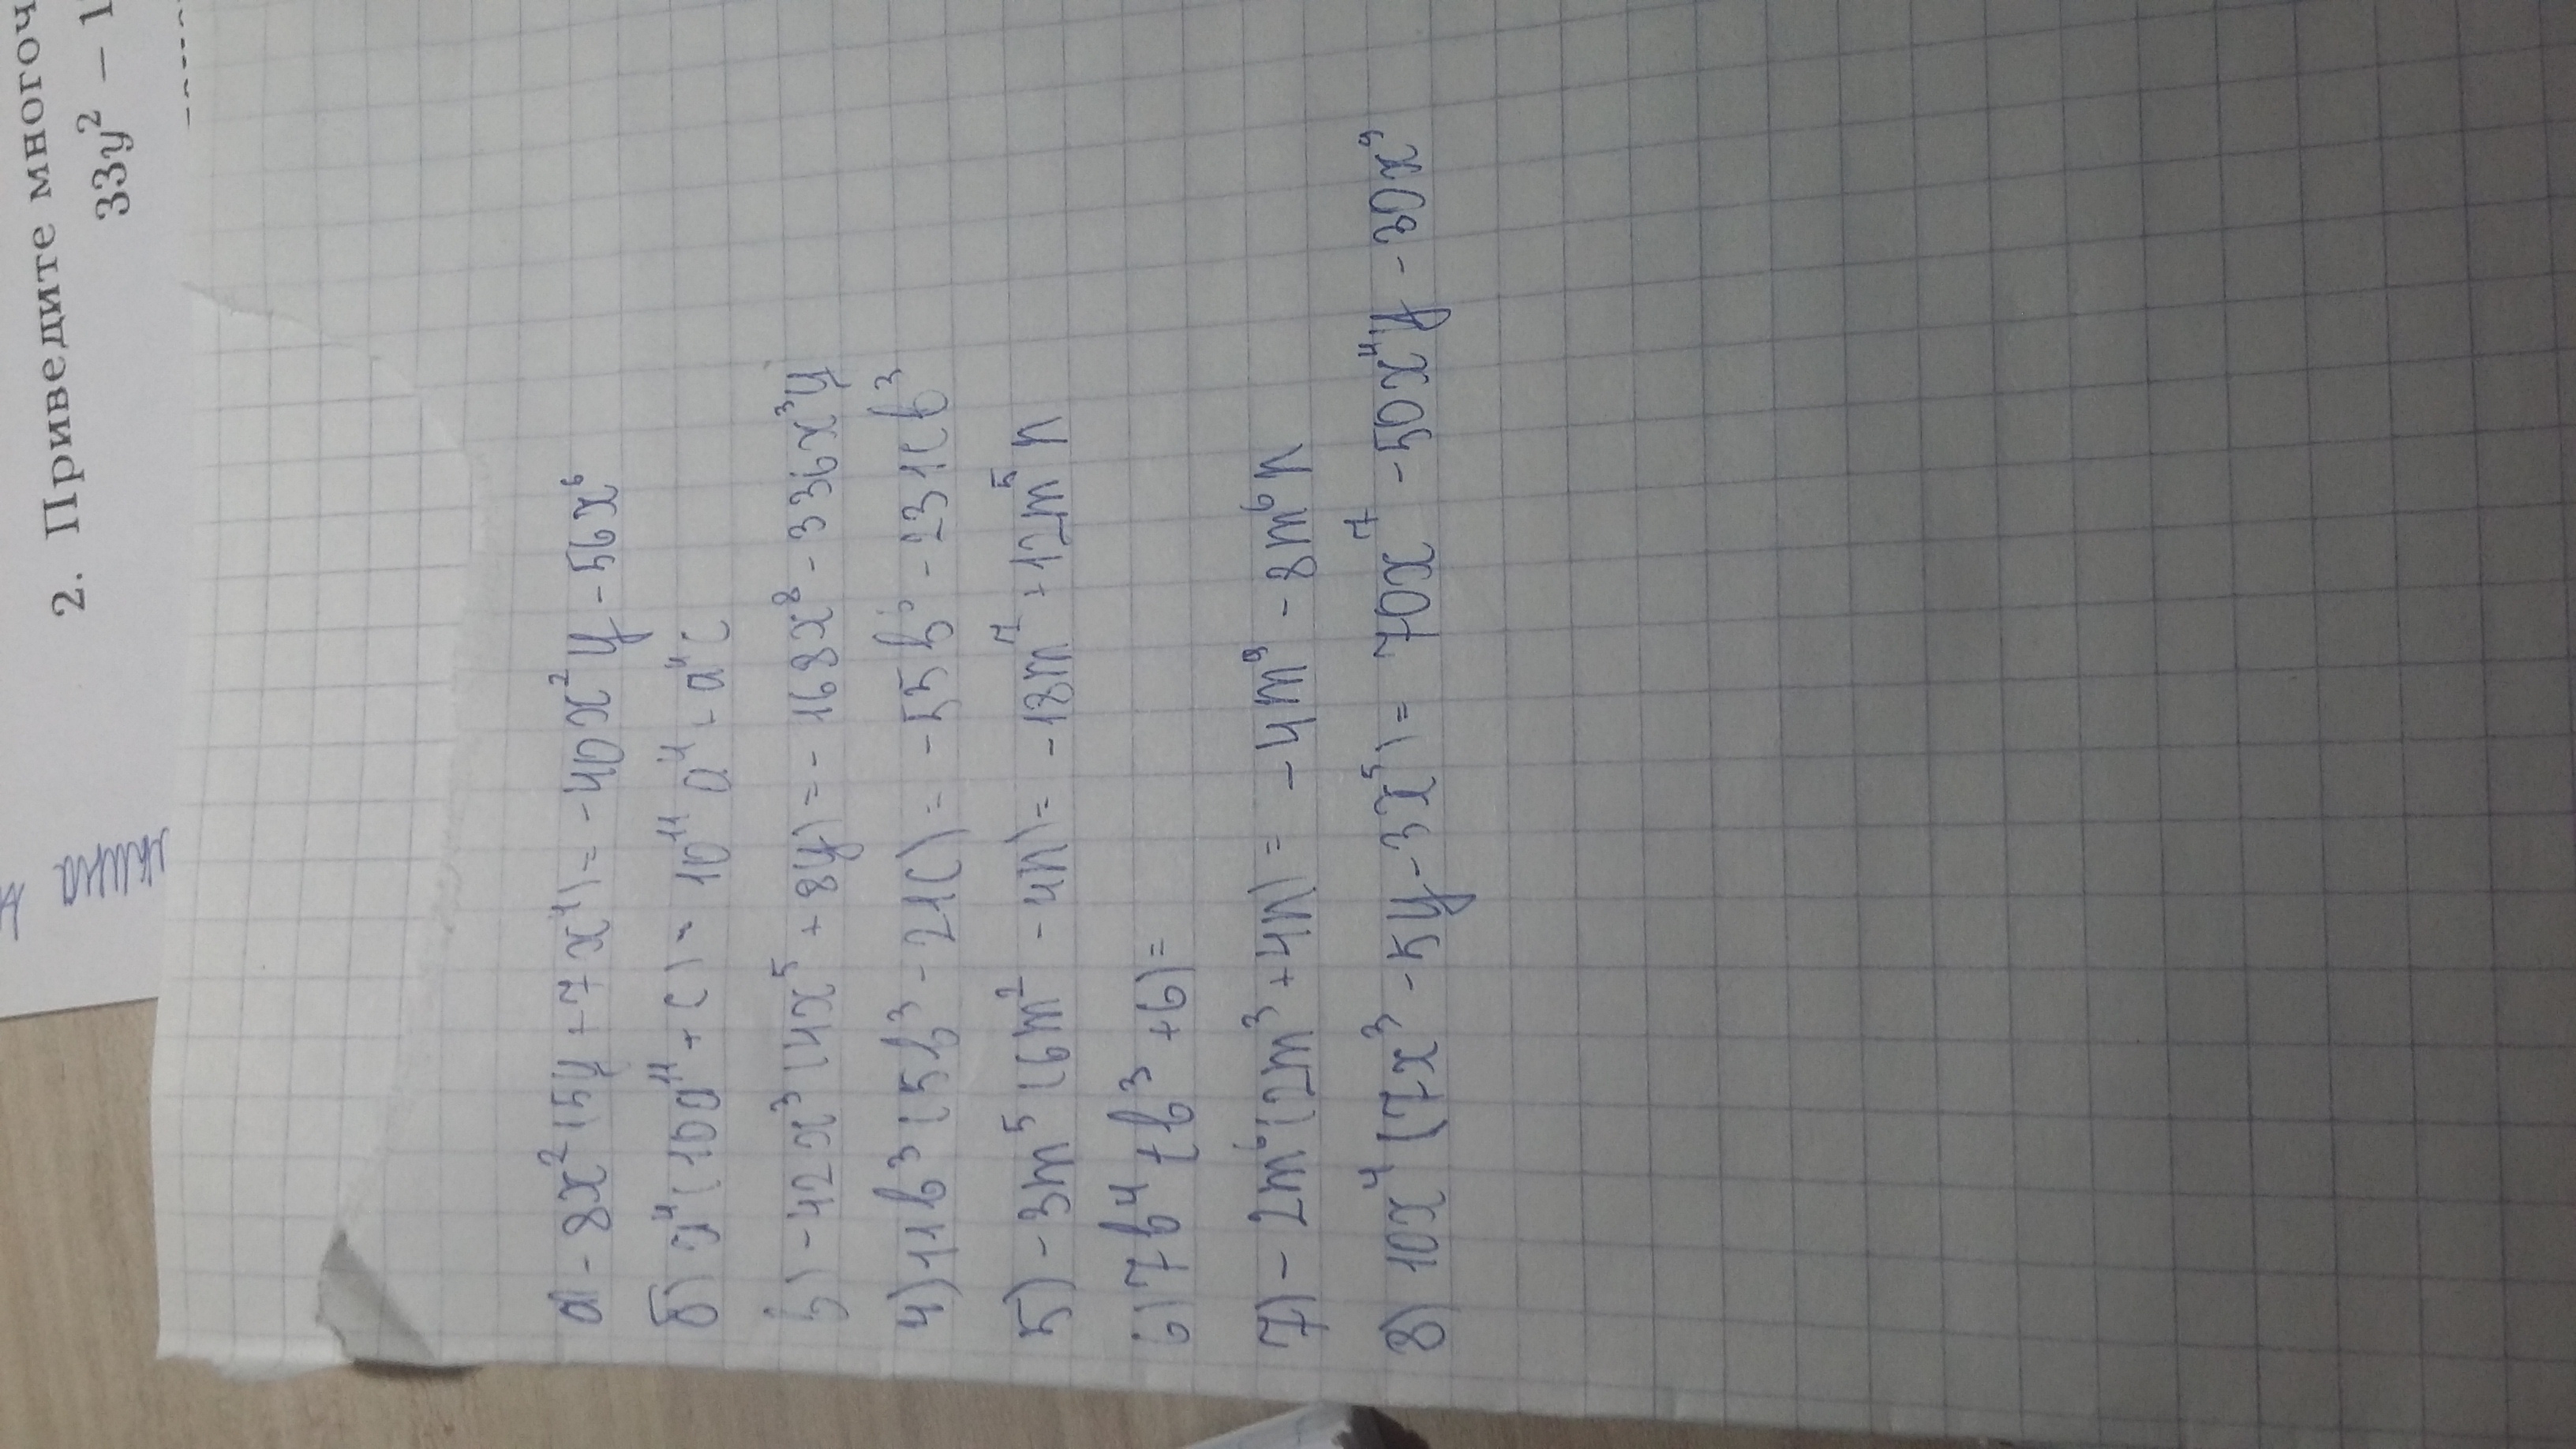 2. Приведите многоч
33y² – 1
а) - 8x² (5y + 7x⁴) = - 40x²y - 56x⁶
б) a⁴ (10a¹¹ + c) = 10¹¹ a⁴ + a⁴c
в) - 42x³ (4x⁵ + 8y) = - 168x⁸ - 336x³y
4) 11b³ (5b³ - 21c) = - 55b³ - 231cb³
5) - 3m⁵ (6m² - 4n) = - 18m⁷ + 12m⁵n
6) 7b⁴ (b³ + 6) =
7) - 2m⁶ (2m³ + 4n) = - 4m⁹ - 8m⁶n
8) 10x⁴ (7x³ - 5y - 3x⁵) = 70x⁷ - 50x⁴y - 30x⁹